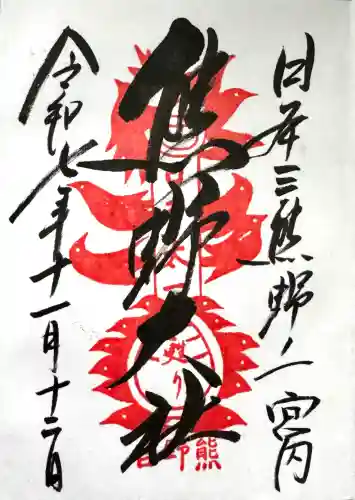 日本三熊野ノ一 宮内
熊野大社
令和七年十一月十二日
甦り